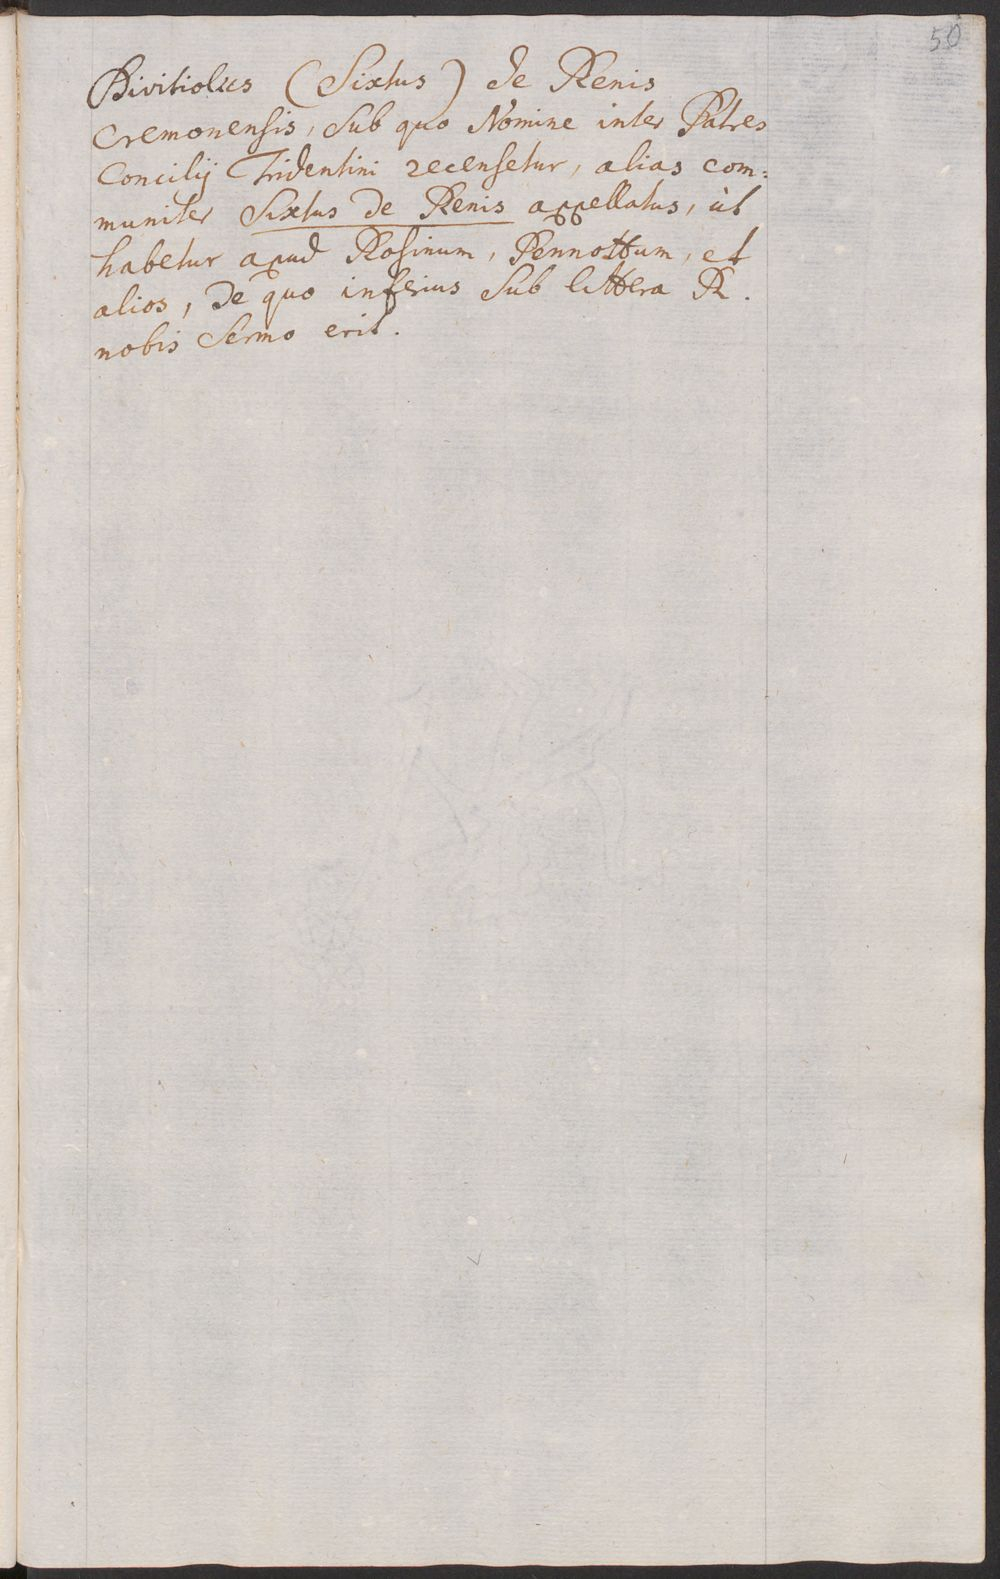 50
Divitiolus (Sixtus) de Renis
Cremonensis, sub quo Nomine inter Patres
Concilij Tridentini recensetur, alias com:
muniter Sixtus de Renis appellatus, ùt
habetur apud Rosinum, Pennottum, et
alios, de quo inferius sub littera R.
nobis sermo erit.